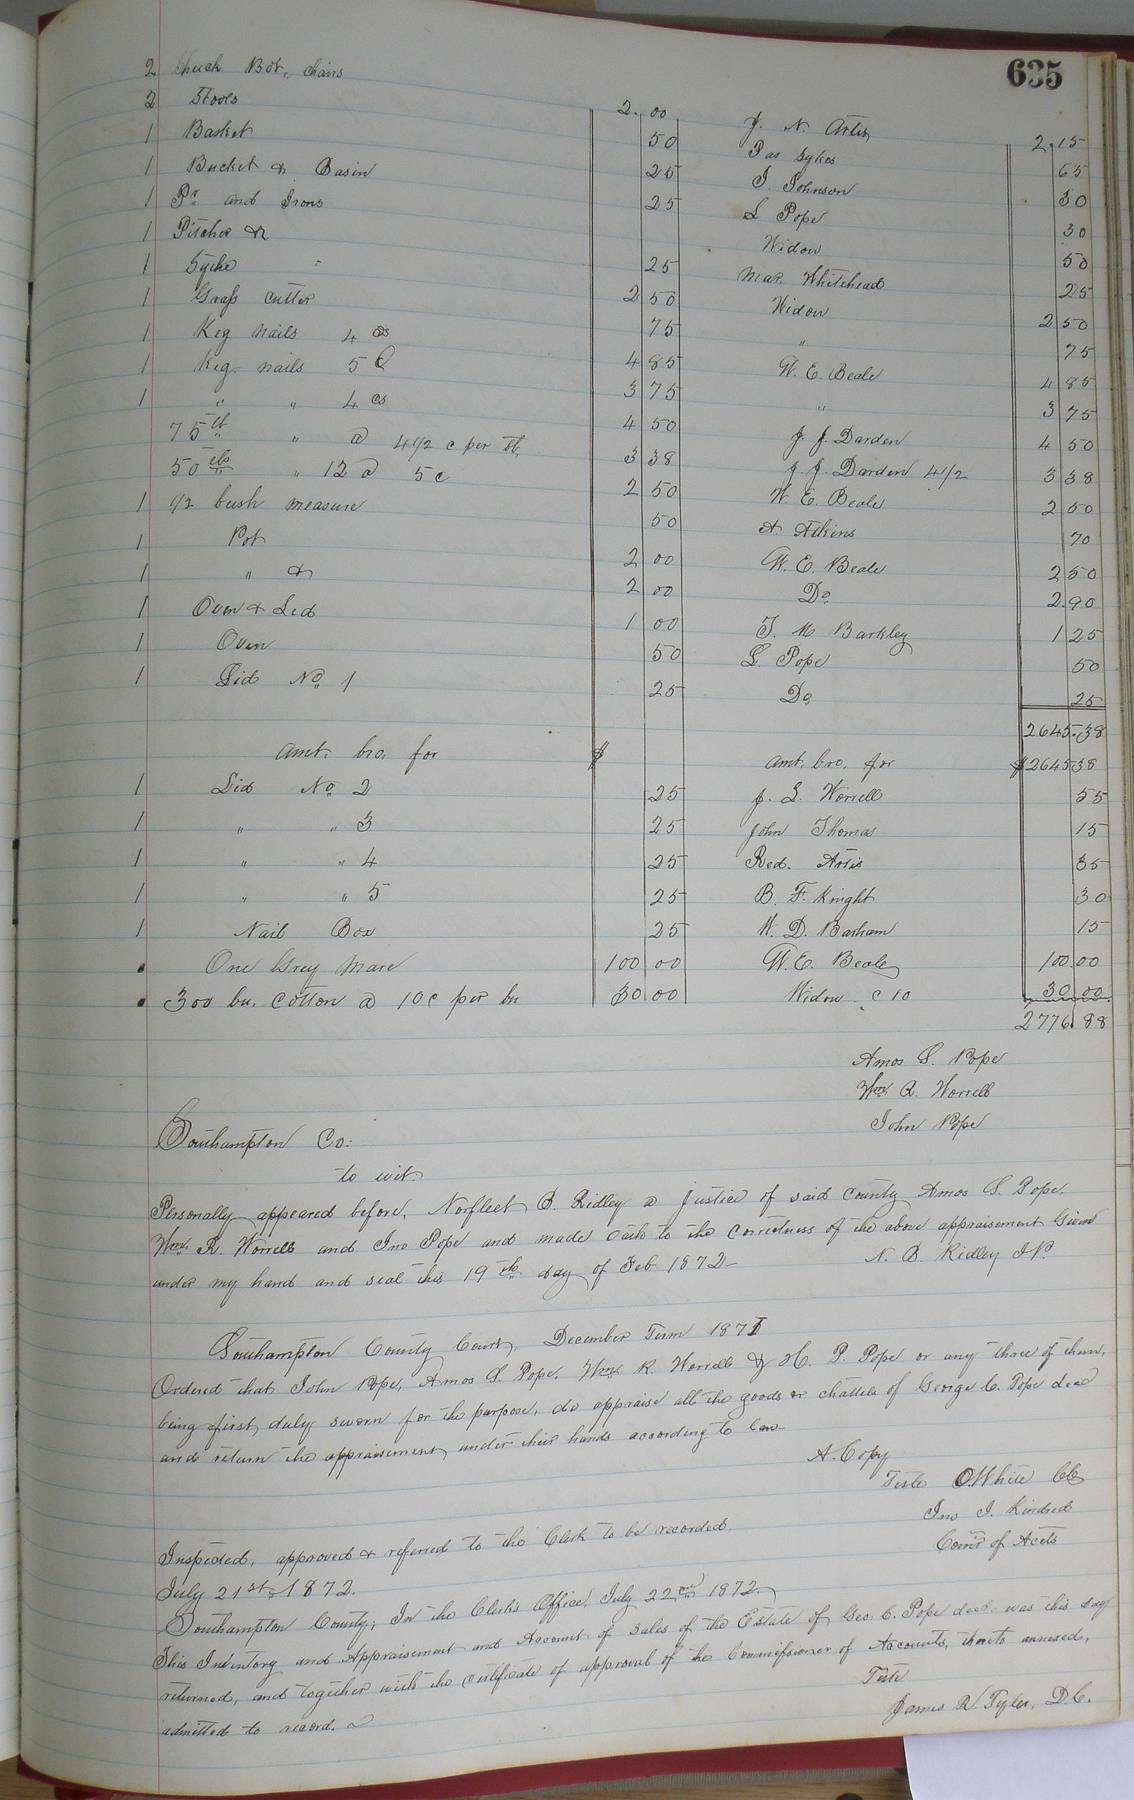 635
2 Shuck Bot. chairs
2 Stools 2.00 J. N. Artis 2.15
1 Basket 50 Jas Sykes 65
1 Bucket & Basin 25 J. Johnson 30
1 Pr. and Irons 25 L Pope 30
1 Pitcher & Widow 50
1 Syke 25 Whitehead 25
1 Grass cutter 2 50 Widow 2 50
1 Keg nails 4 ds 75 " 75
1 Keg nails 5 4 85 W. E. Beale 4 85
1 " " 4 ds 3 75 " 3 75
75 lb " @ 4 1/2 c per lb. 4 50 J. J. Darden 4 50
50 lbs " 12 @ 5c 3 38 J. J. Darden 4 1/2 3 38
1 1/2 bush measure 2 50 W. E. Beale 2 50
1 Pot 50 A Atkins 70
1 " & 2 00 W. E. Beale 2 50
1 Oven & Lid 2 00 Do 2.90
1 Oven 1 00 T. M Barkley 1 25
1 Lid No 1 50 L. Pope 50
25 Do 25
2645.38
amt. bro. for $ amt. bro. for $2645 38
1 Lid No 2 25 J. L. Worrell 55
1 " " 3 25 John Thomas 15
1 " " 4 25 Red. Artis 35
1 " " 5 25 B. F. Knight 30
1 Nail Box 25 W. D. Barham 15
One Grey Mare 100 00 W. E. Beale 100.00
300 bu. cotton @ 10c per bu 30.00 Widow c 10 30.00
2776.88
Amos S. Pope
Wm R. Worrell
John Pope
Southampton Co:
to wit.
Personally appeared before, Norfleet B. Ridley a justice of said county Amos S. Pope,
Wm R. Worrell and Jno Pope and made oath to the correctness of the above appraisement Given
under my hand and seal this 19th day of Feb 1872 N. B. Ridley J.P.
Southampton County Court, December Term 1871
Ordered that John Pope, Amos S. Pope, Wm R. Worrell & H. P. Pope or any three of them,
being first duly sworn for the purpose, do appraise all the goods or chattels of George C. Pope decd
and return the appraisement under their hands according to law
A. Copy
Teste O. White CC
Jno J. Kindred
Comr of Accts
Inspected, approved & referred to the Clerk to be recorded
July 21st 1872.
Southampton County; In the Clerk's Office, July 22nd 1872.
This Inventory and Appraisement and Account of Sales of the Estate of Geo. C. Pope decd. was this day
returned, and together with the certificate of approval of the Commissioner of Accounts, thereto annexed,
admitted to record.
Teste
James R. Tyler, D.C.